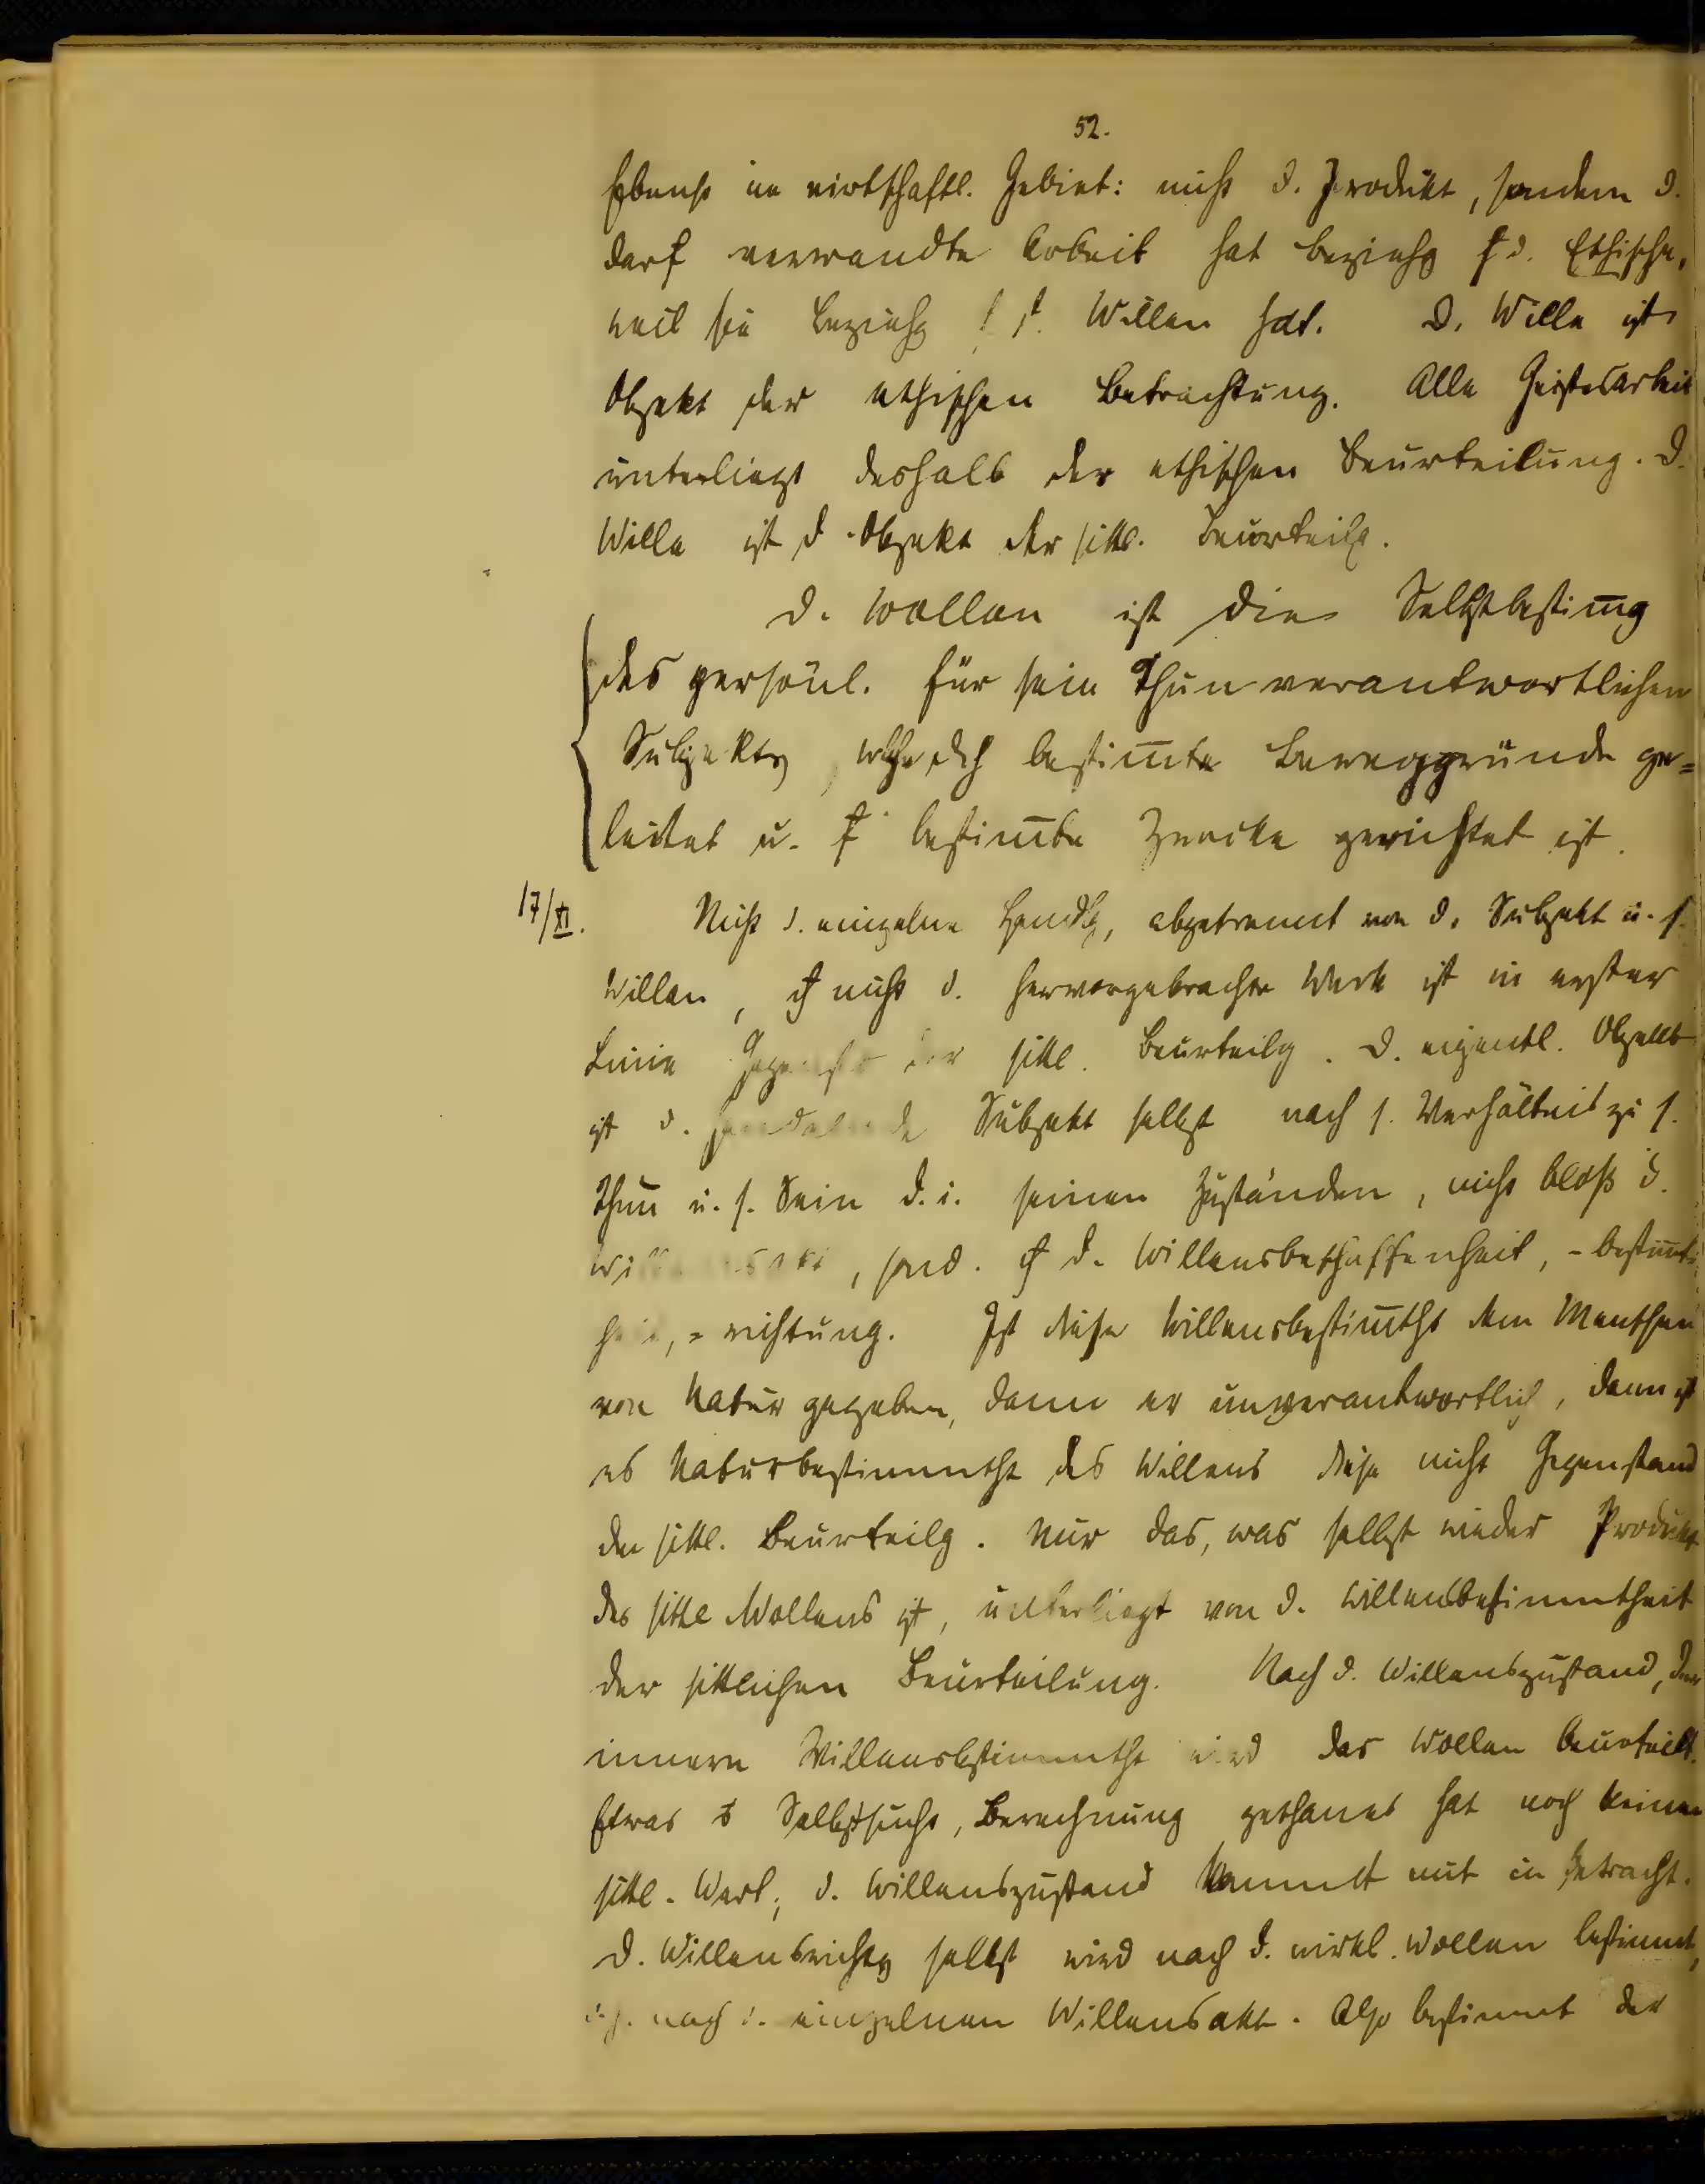 52.
Ebenso im wirtschaftl. Gebiet: nicht d. Produkt, sondern d.
darauf verwandte Arbeit hat Beziehg auf d. Ethische,
weil sie Beziehg Willen hat. D. Wille ist
Objekt der ethischen Betrachtung. Alle Geistesarbeit
unterliegt deshalb der ethischen Beurteilung. D.
Wille ist d. Objekt der sittl. Beurteilg.
D. Wollen ist die Selbstbestim̅g
des persönl. für sein Thun verantwortlichen
Subjekts, welche dch bestim̅te Beweggründe ge=
leitet u. auf bestim̅te Zwecke gerichtet ist.
17/XI. Nicht d. einzelne Handlg, abgetrennt von d. Subjekt u. s.
Willen, auch nicht d. hervorgebrachte Werk ist in erster
Linie der sittl. Beurteilg. D. eigentl. Objekt
ist d. handelnde Subjekt selbst nach s. Verhältnis zu s.
Thun u. s. Sein d. i. seinen Zuständen, nicht bloß d.
Willensakt, sond. auch d. Willensbeschaffenheit, -bestimt-
heit, -richtung. Ist diese Willensbestim̅tht dem Menschen
von Natur gegeben, dann er unverantwortlich, dann ist
es Naturbestimmtht des Willens diese nicht Gegenstand
der sittl. Beurteilg. Nur das, was selbst wieder Produkt
des sittl Wollens ist, unterliegt von d. Willensbestimmtheit
der sittlichen Beurteilung. Nach d. Willenszustand, der
innern Willensbestimmtht wird das Wollen beurteilt.
Etwas Selbstsucht, Berechnung gethanes hat noch keinen
sittl. Wert; d. Willenszustand kommt mit in Betracht.
D. Willensrichtg selbst wird nach d. wirkl. Wollen bestimmt,
d. h. nach d. einzelnen Willensakt. Also bestimmt der